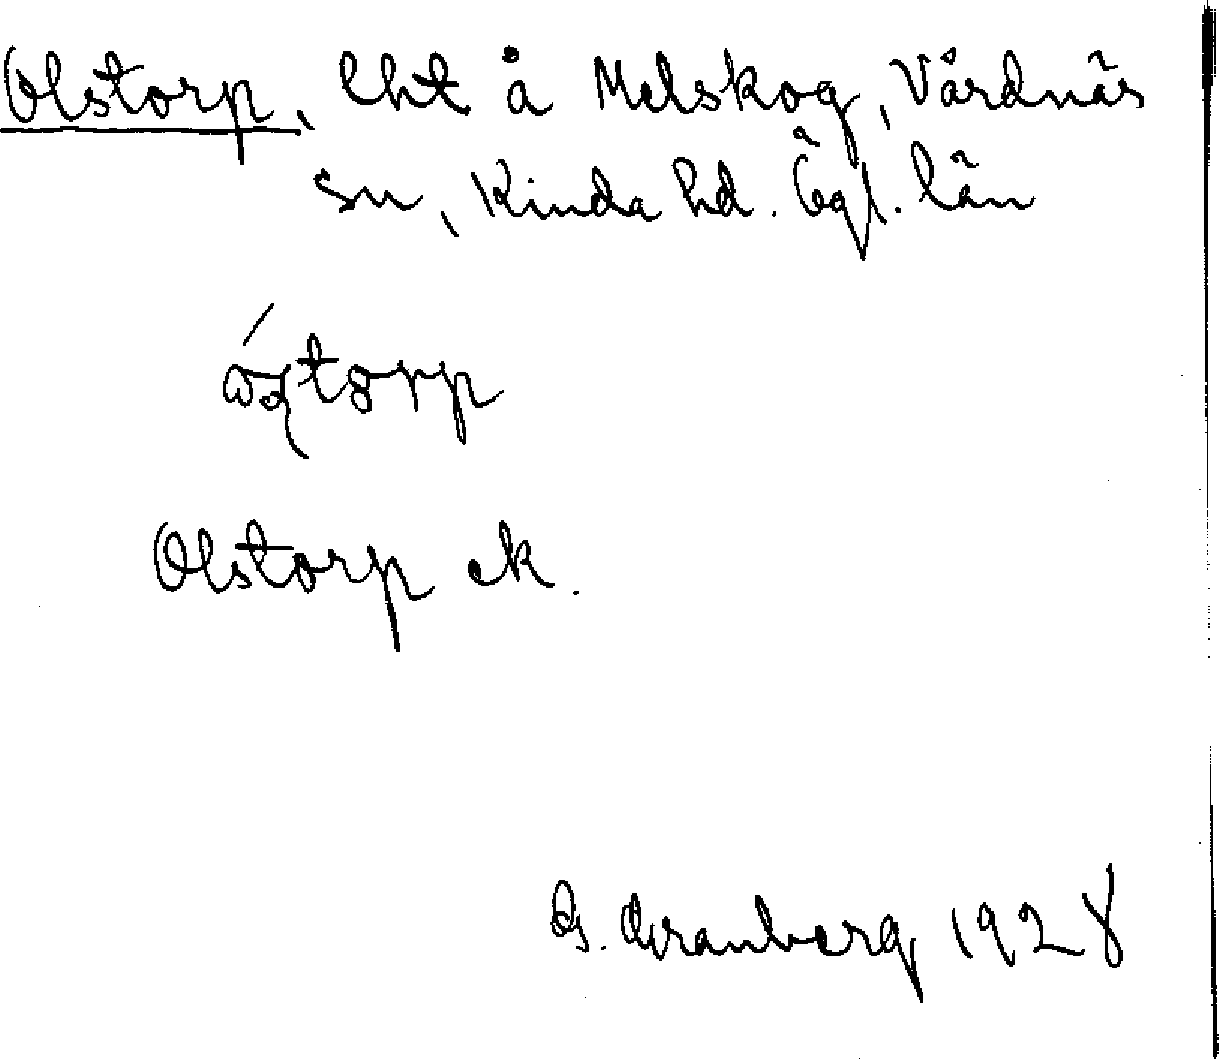 Olstorp, lht å Melskog, Vårdnäs
sn, Kinda hd. Ögl. län
Olstorp ek.
G. Granberg 1928